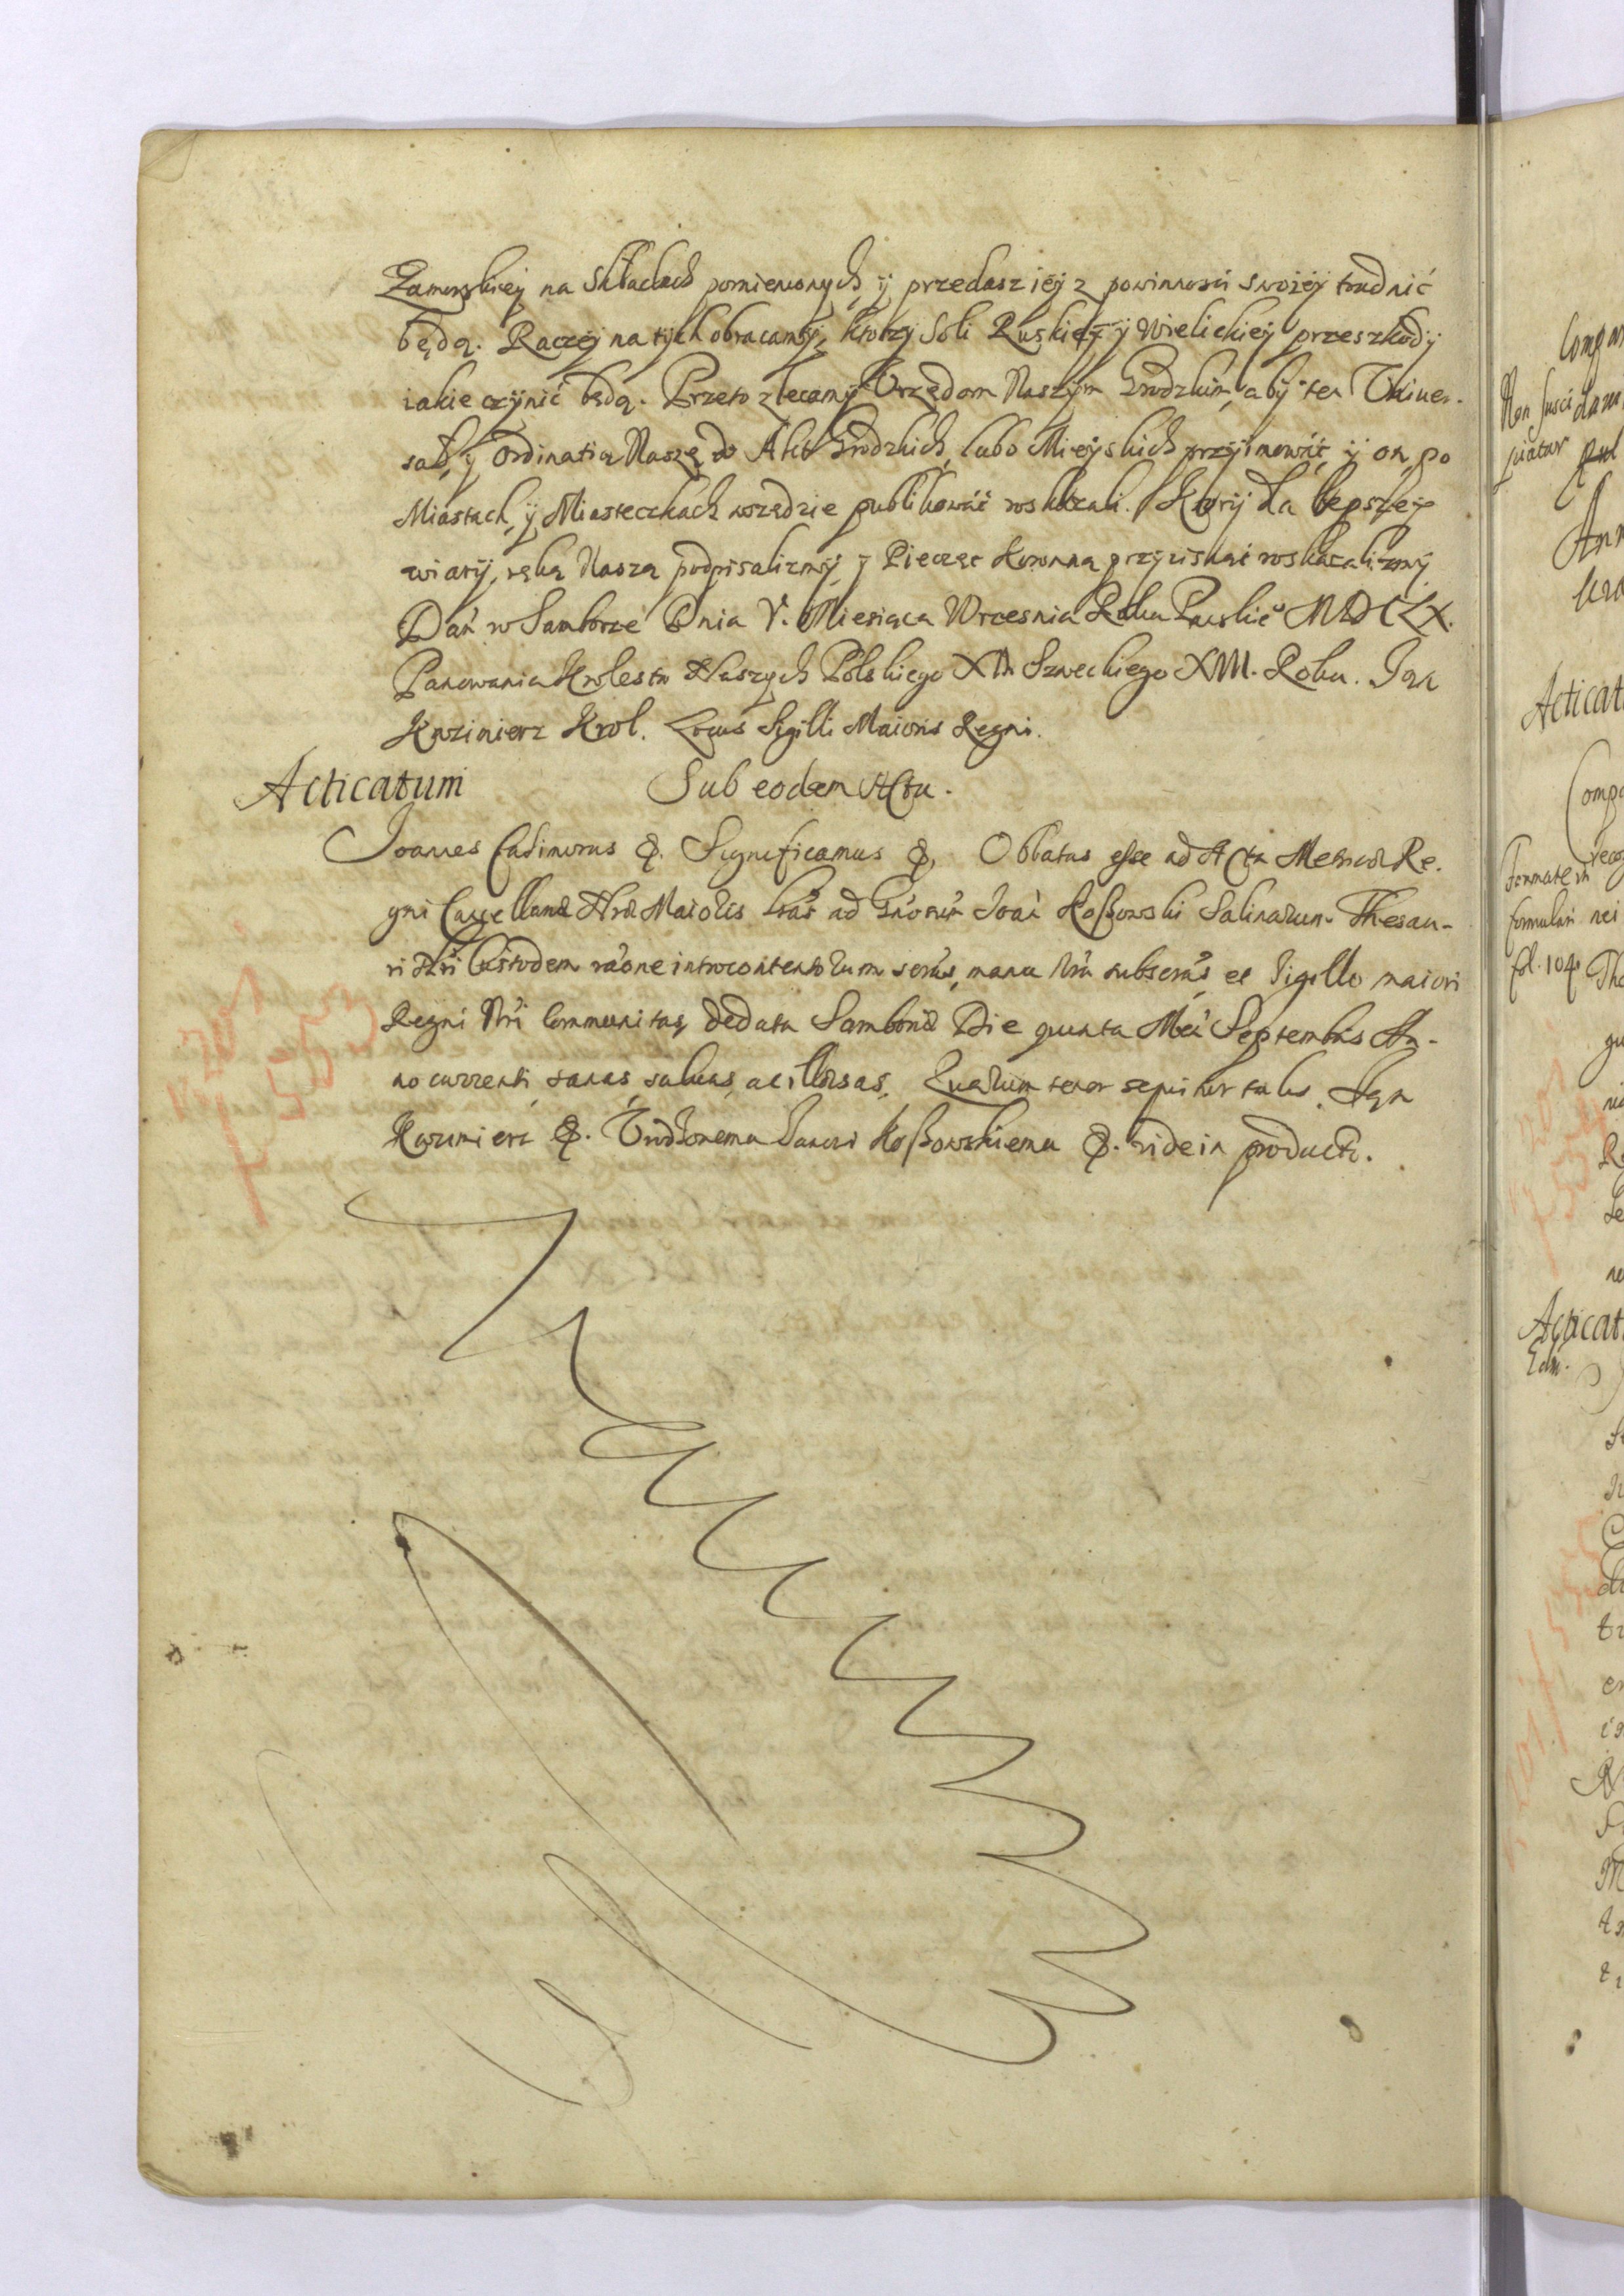 Zamorskiey na Składach pomienionych, y przedasz iey z powinnosci swoiey trudnić
będą. Raczey na tych obracamy, ktorzy Soli Ruskiey y Wielickiey przeszkody
iakie czynić będą. Przeto zlecamy Urzędom Naszym Grodzkim, aby ten Uniuer-
sał, y Ordinatią Naszę do Akt Grodzkich, lubo Mieyskich przyimować, y on po
Miastach, y Miasteczkach wszędzie publikować roskazali. Ktory dla lepszey
wiary, ręką Naszą podpisalismy, y Pieczęć Koronną przycisnąć roskazalismy
Dań w Samborze Dnia V. Miesiąca Wrzesnia Roku Pańskie° MDCLX.
Panowania Krolestw Naszych Polskiego XII. Szweckiego XIII. Roku. Jan
Kazimierz Krol. Locus Sigilli Maioris Regni.
Acticatum Sub eodem Actu.
Joannes Casimirus &. Significamus &, Oblatas esse ad Acta Metricæ Re-
gni Cancellariæ Nræ Maioris Lrás ad Gnósum Joań Koßowski Salinarum Thesau-
ri Nri Custodem ráone introcontentorum scrás, manu Nrá subscrás, et Sigillo maiori
Regni Nri communitas, de data Samboriæ Die quinta Meń Septembris An-
no currenti, sanas, saluas, ac illæsas, Quarum tenor sequitur talis. Jan
Kazimierz &. Urodzonemu Janowi Koßowskiemu &. vide in producto.
201
f 553
Non susci
piatur
Acticat
Formate in
formulari
fol. 104.
Acticat